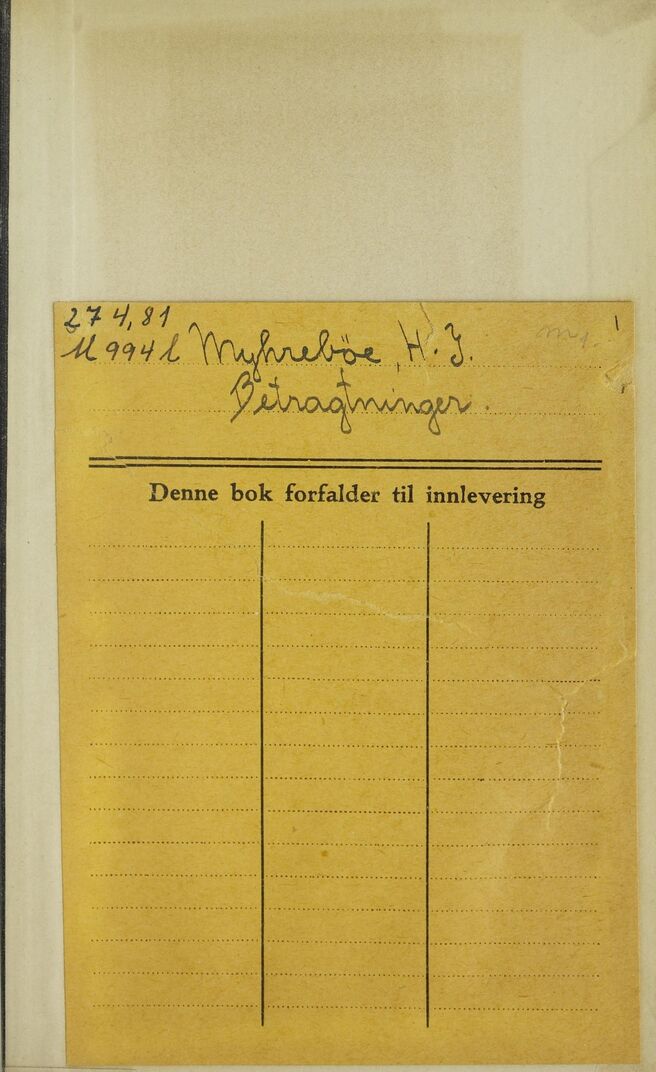 274,81
M994l Myhreböe, H. J.
Betragtninger.
Denne bok forfalder til innlevering